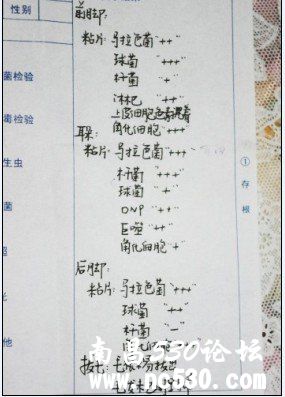 性别
菌检验
毒检验
生虫
菌
光
他
前脚:
粘片: 马拉色菌 "++"
球菌 "+++"
杆菌 "+"
淋巴 "++"
上皮细胞
耳: 角化细胞 "+++"
粘片: 马拉色菌 "+++"
杆菌 "+++"
球菌 "+"
DNP "+"
巨噬 "++"
角化细胞 "+"
后脚:
粘片: 马拉色菌 "+++"
球菌 "++"
杆菌 "-"
①存根
南昌530论坛
www.nc530.com